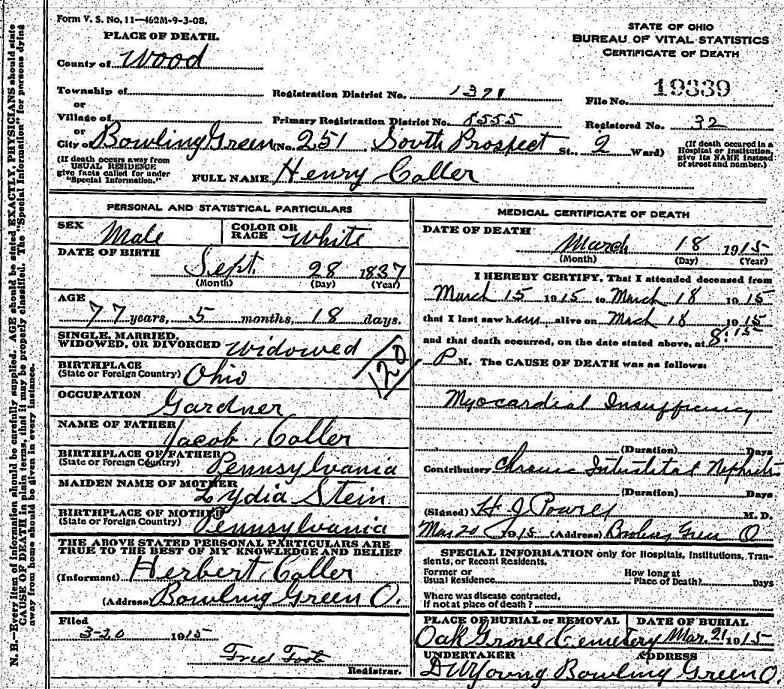 Form V. S. No. 11—462M-9-3-08.
PLACE OF DEATH.
County of Wood
Township of
or
Village of
or
City of Bowling Green (No. 251 South Prospect St. 2 Ward)
(If death occurs away from
USUAL RESIDENCE
give facts called for under
"Special Information.")
STATE OF OHIO
BUREAU OF VITAL STATISTICS
CERTIFICATE OF DEATH
Registration District No. 1321
File No. 19339
Primary Registration District No. 8555
Registered No. 32
(If death occured in a
Hospital or Institution,
give its NAME instead
of street and number.)
FULL NAME Henry Coller
PERSONAL AND STATISTICAL PARTICULARS
SEX Male
COLOR OR
RACE White
DATE OF BIRTH
Sept. 28 1837
(Month) (Day) (Year)
AGE
77 years, 5 months, 18 days.
SINGLE, MARRIED,
WIDOWED, OR DIVORCED Widowed
BIRTHPLACE
(State or Foreign Country) Ohio
120
OCCUPATION
Gardner
NAME OF FATHER
Jacob Coller
BIRTHPLACE OF FATHER
(State or Foreign Country) Pennsylvania
MAIDEN NAME OF MOTHER
Lydia Stein
BIRTHPLACE OF MOTHER
(State or Foreign Country) Pennsylvania
THE ABOVE STATED PERSONAL PARTICULARS ARE
TRUE TO THE BEST OF MY KNOWLEDGE AND BELIEF
(Informant) Herbert Coller
(Address) Bowling Green O.
Filed
3-20 1915
Fred Foote
Registrar.
MEDICAL CERTIFICATE OF DEATH
DATE OF DEATH
March 18 1915
(Month) (Day) (Year)
I HEREBY CERTIFY, That I attended deceased from
March 15 1915 to March 18 1915
that I last saw him alive on Mch 18 1915
and that death occurred, on the date stated above, at 8:15
P M. The CAUSE OF DEATH was as follows:
Myocardial Insufficiency
(Duration) Days
Contributory Chronic Interstitial Nephritis
(Duration) Days
(Signed) H J Powers M. D.
Mar 20 1915 (Address) Bowling Green O
SPECIAL INFORMATION only for Hospitals, Institutions, Tran-
sients, or Recent Residents.
Former or
Usual Residence
How long at
Place of Death? Days
Where was disease contracted,
if not at place of death?
PLACE OF BURIAL or REMOVAL
Oak Grove Cemetery
DATE OF BURIAL
Mar. 21 1915
UNDERTAKER ADDRESS
D W Young Bowling Green O.
N. B.—Every item of information should be carefully supplied. AGE should be stated EXACTLY, PHYSICIANS should state
CAUSE OF DEATH in plain terms, that it may be properly classified. The "Special Information" for persons dying
away from home should be given in every instance.